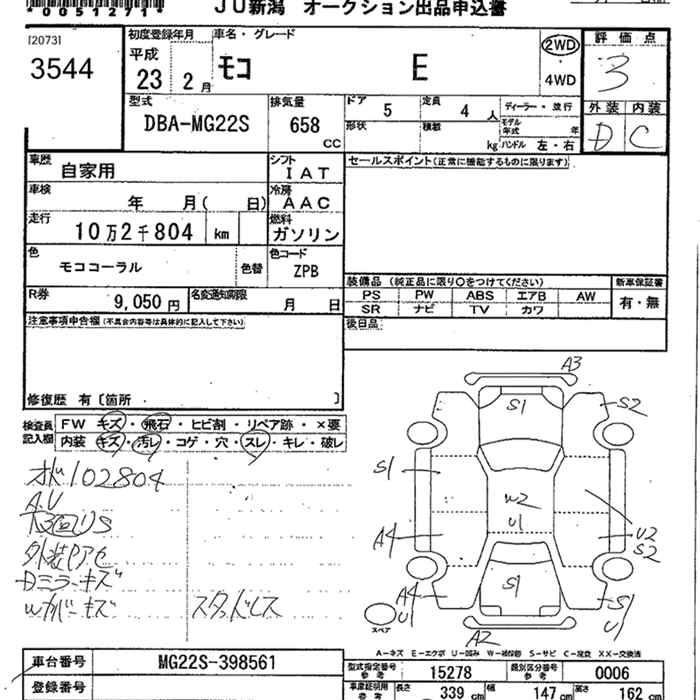 *00512714*
JU新潟 オークション出品申込書
[2073]
3544
初度登録年月
平成
23 2 月
車名・グレード
モコ E
2WD
4WD
評価点
3
外装 内装
D C
型式
DBA-MG22S
排気量
658
CC
ドア 5
定員 4 人
形状
積載 kg
ディーラー・並行
モデル年式 年
ハンドル 左・右
車歴
自家用
シフト
IAT
車検
年 月( 日)
冷房
AAC
走行
10万2千804 km
燃料
ガソリン
色
モココーラル
色替
色コード
ZPB
R券
9,050 円
名変通知期限
月 日
セールスポイント(正常に機能するものに限ります)
装備品 (純正品に限り○をつけてください)
PS PW ABS エアB AW
SR ナビ TV カワ
新車保証書
有・無
後日品
注意事項申告欄(不具合内容等は具体的に記入して下さい)
修復歴 有〔箇所 〕
検査員記入欄
FW キズ・飛石・ヒビ割・リペア跡・×要
内装 キズ・汚レ・コゲ・穴・スレ・キレ・破レ
102804
A.U
外装
Dミラーキズ
Wカバーキズ
スタッドレス
A3
S1
S2
S1
W2
U1
A4
U2
S2
S1
A4
U1
S1
U1
A2
スペア
A-キズ E-エクボ U-凹み W-補修跡 S-サビ C-腐食 XX-交換済
車台番号
MG22S-398561
登録番号
型式指定番号
参考
15278
類別区分番号
参考
0006
車庫証明用
参考
長さ 339 cm
幅 147 cm
高さ 162 cm